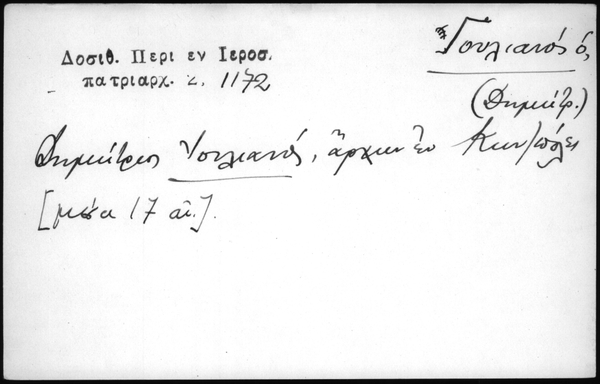 Ἰουλιανός ὁ,
(Δημήτρ.)
Δοσιθ. Περι εν Ιεροσ.
πατριαρχ. σ. 1172
Δημήτριος Ἰουλιανός, ἄρχων ἐν Κων/πόλει
[μέσα 17 αἰ.].